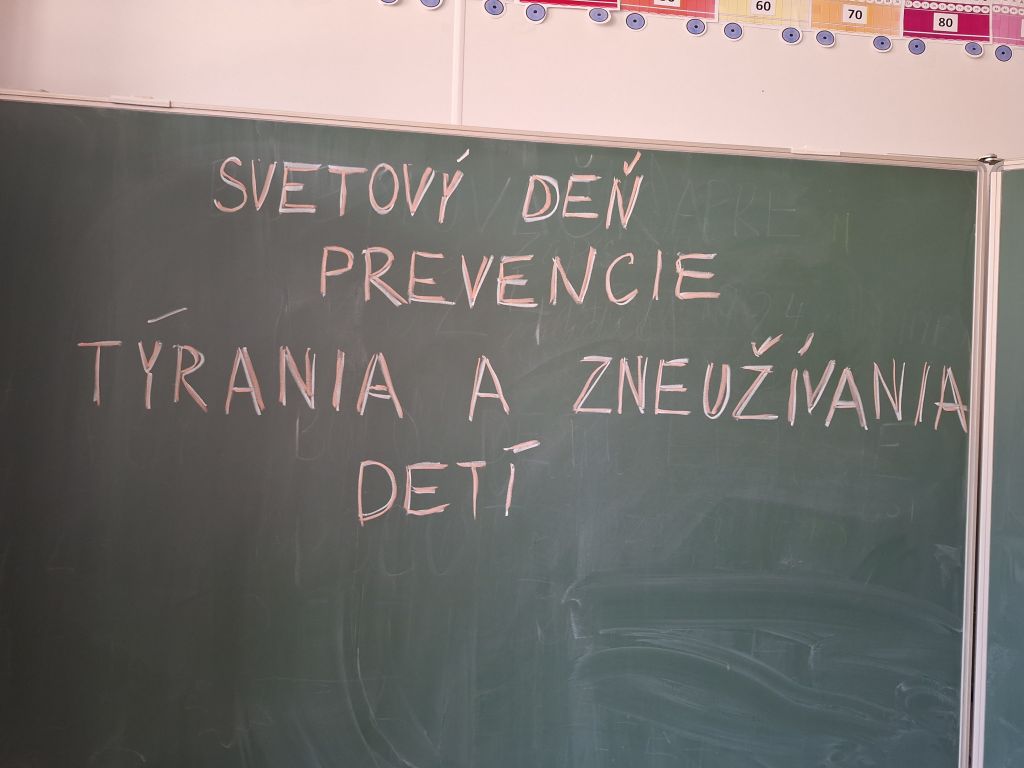 60
70
80
SVETOVÝ DEŇ
PREVENCIE
TÝRANIA A ZNEUŽÍVANIA
DETÍ